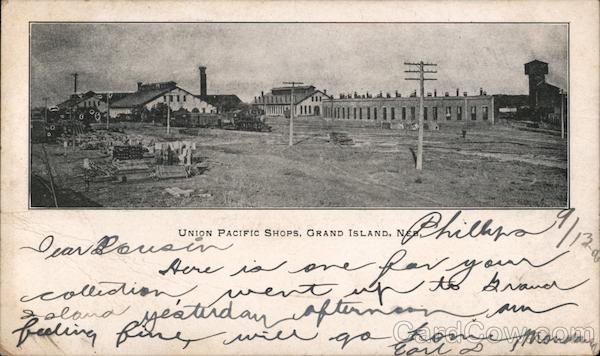 UNION PACIFIC SHOPS, GRAND ISLAND, NEB.
Phillips 9/13
Dear Cousin
Here is one for your
collection went up to Grand
Island yesterday afternoon, am
feeling fine, will go home
CardCow.com